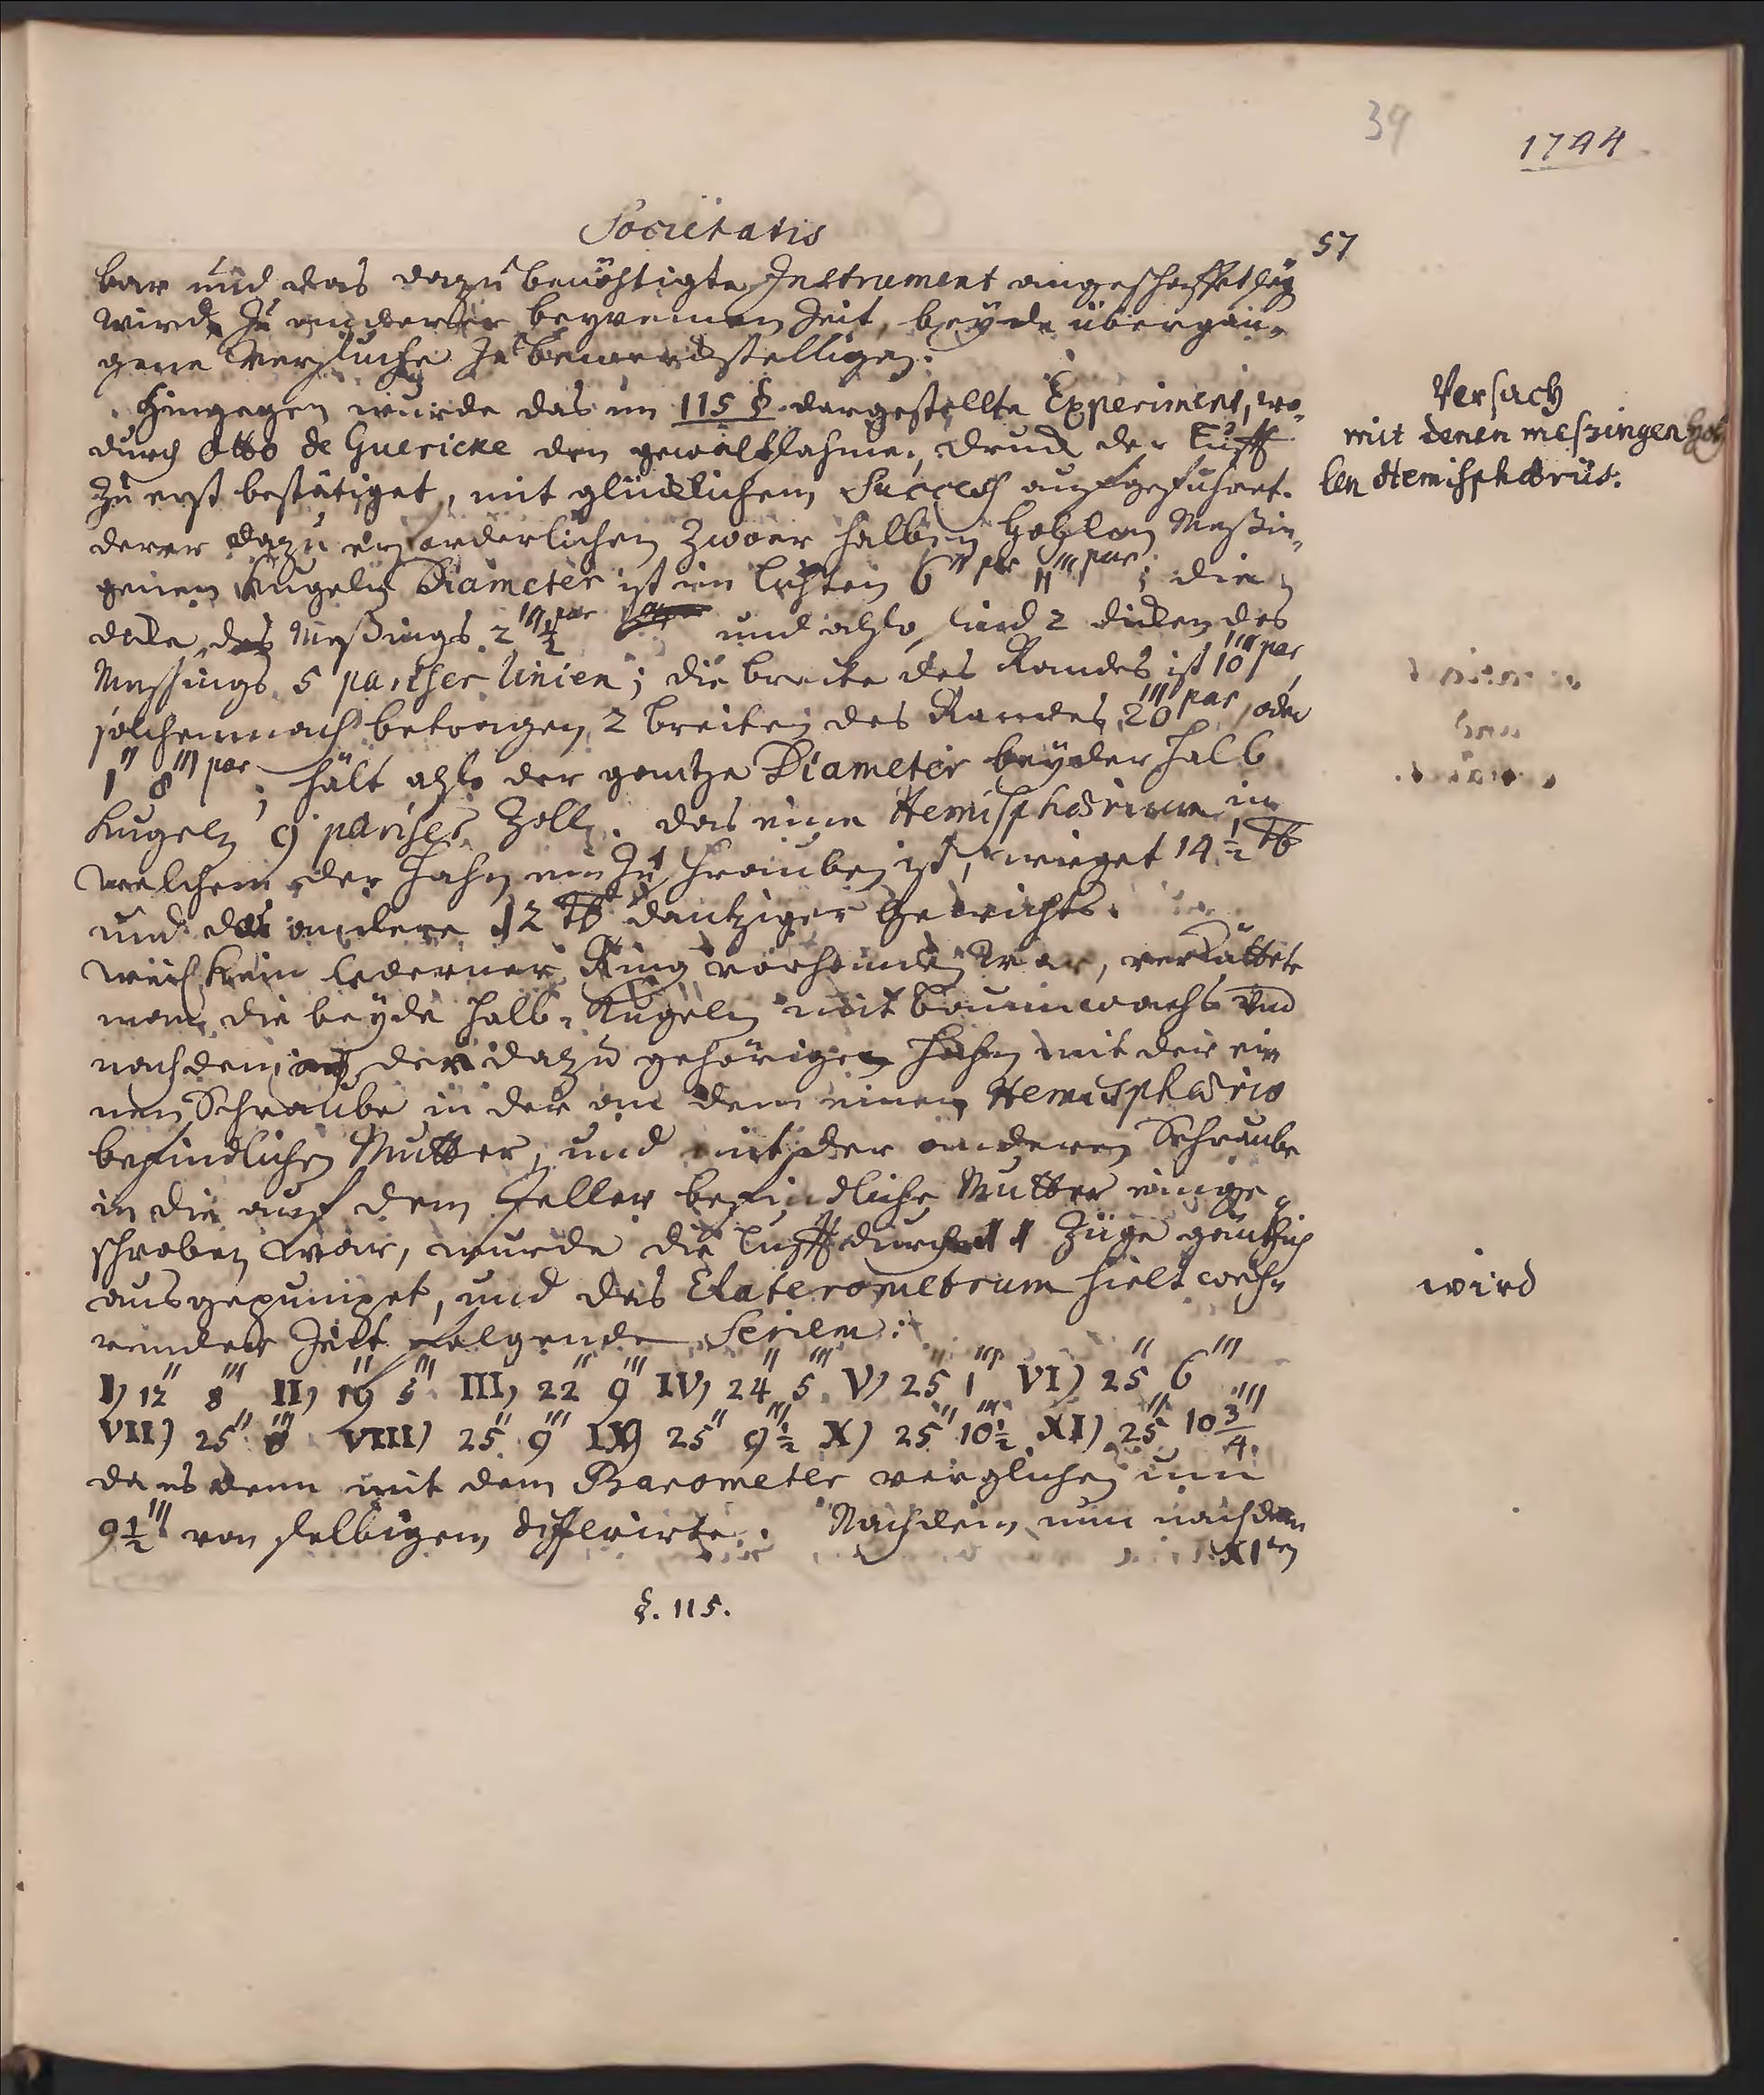 39
1744
Societatis
57
bar und das dazu benöhtigte Instrument angeschaffet sey
wird, zu anderer beqvemen Zeit, beyde übergan-
gene Versuche zu bewerckstelligen.
Hingegen wurde das im 115 § dargestellte Experiment, wo-
durch Otto de Guericke den gewaltsahmen Druck der Lufft
zu erst bestätiget, mit glücklichem Succeß ausgeführet.
derer dazu erforderlichen zwoer halben hohlen Meßin-
genen Kugeln Diameter ist im lichten 6" par 11"' par; die
dicke des Meßings 2"'½ par und also sind 2 dicken des
Messings 5 pariser Linien; die breite des Randes ist 10"' par,
solchemnach betragen 2 breiten des Randes 20"' par, oder
1" 8"' par; hält also der gantze Diameter beyder halb
Kugeln 9 pariser Zoll. das eine Hemisphærium, in
welchem der Hahn einzuschrauben ist, wieget 14½ ℔
und das andere 12 ℔ dantziger Gewichts.
Weil kein lederner Ring vorhanden war, verküttete
man die beyde halb-Kugeln mit Baumwachs und
nachdem der dazu gehörigen Hahn mit der ei-
nen Schraube in der an dem einen Hemisphærio
befindlichen Mutter, und mit der anderen Schraube
in die auf dem Teller befindliche Mutter einge-
schroben war, wurde die Lufft durch 11 Züge gäntzlich
ausgepumpet, und das Elaterometrum hielt wäh-
render Zeit folgende Seriem:
I) 12" 8"' II) 19" 5"' III) 22" 9"' IV) 24" 5"' V) 25" 1"' VI) 25" 6"'
VII) 25" 8"' VIII) 25" 9"' IX) 25" 9½"' X) 25" 10½"' XI) 25" 10¾"'
da es denn mit dem Barometer verglichen um
9½"' von selbigem differirte. Nachdem nun nach dem
XIten
§. 115.
Versuch
mit denen meszingen hoh
len Hemisphæriis.
wird